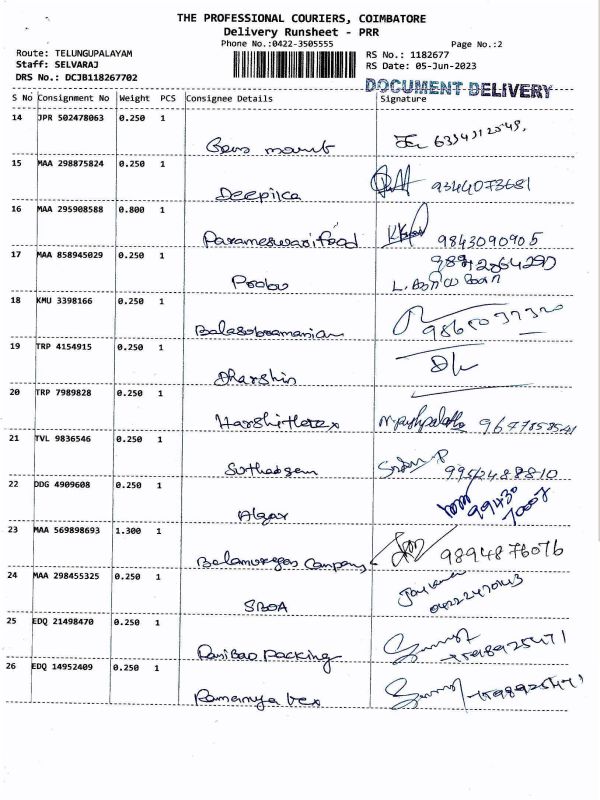 THE PROFESSIONAL COURIERS, COIMBATORE
Delivery Runsheet - PRR
Phone No.:0422-3505555 Page No.:2
Route: TELUNGUPALAYAM RS No.: 1182677
Staff: SELVARAJ RS Date: 05-Jun-2023
DRS No.: DCJB118267702 DOCUMENT DELIVERY
S No Consignment No Weight PCS Consignee Details Signature
14 JPR 502478063 0.250 1
15 MAA 298875824 0.250 1
Deepika 9344073681
16 MAA 295908588 0.800 1
Parameswari food 9843090905
17 MAA 858945029 0.250 1
18 KMU 3398166 0.250 1
Balasobramanian
19 TRP 4154915 0.250 1
Dharshin
20 TRP 7989828 0.250 1
Harshittex
21 TVL 9836546 0.250 1
9952488810
22 DDG 4909608 0.250 1
Algar 99430
7007
23 MAA 569898693 1.300 1
Balamurugan Company 9894876076
24 MAA 298455325 0.250 1
SBOA
25 EDQ 21498470 0.250 1
Packing
26 EDQ 14952409 0.250 1
Ramanuya tex